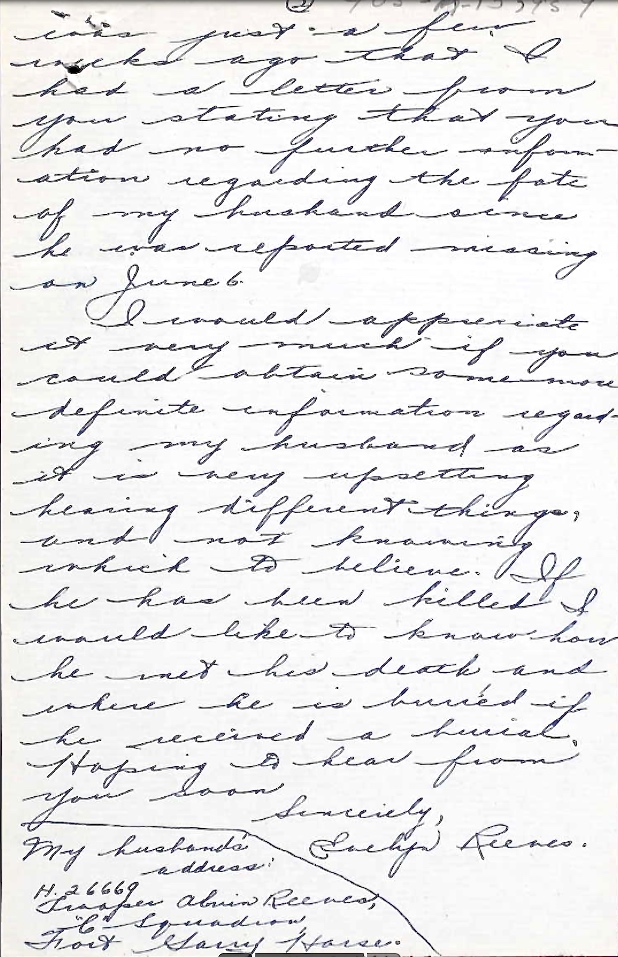 was just a few
weeks ago that I
had a letter from
you stating that you
had no further inform-
ation regarding the fate
of my husband since
he was reported missing
on June 6.
I would appreciate
it very much if you
could obtain some more
definite information regard-
ing my husband as
it is very upsetting
hearing different things,
and not knowing
which to believe. If
he has been killed I
would like to know how
he met his death and
where he is buried if
he received a burial.
Hoping to hear from
you soon
Sincerely,
Evelyn Reeves.
My husband's
address:
H. 26669
Trooper Alvin Reeves,
"C" Squadron,
Fort Garry Horse.